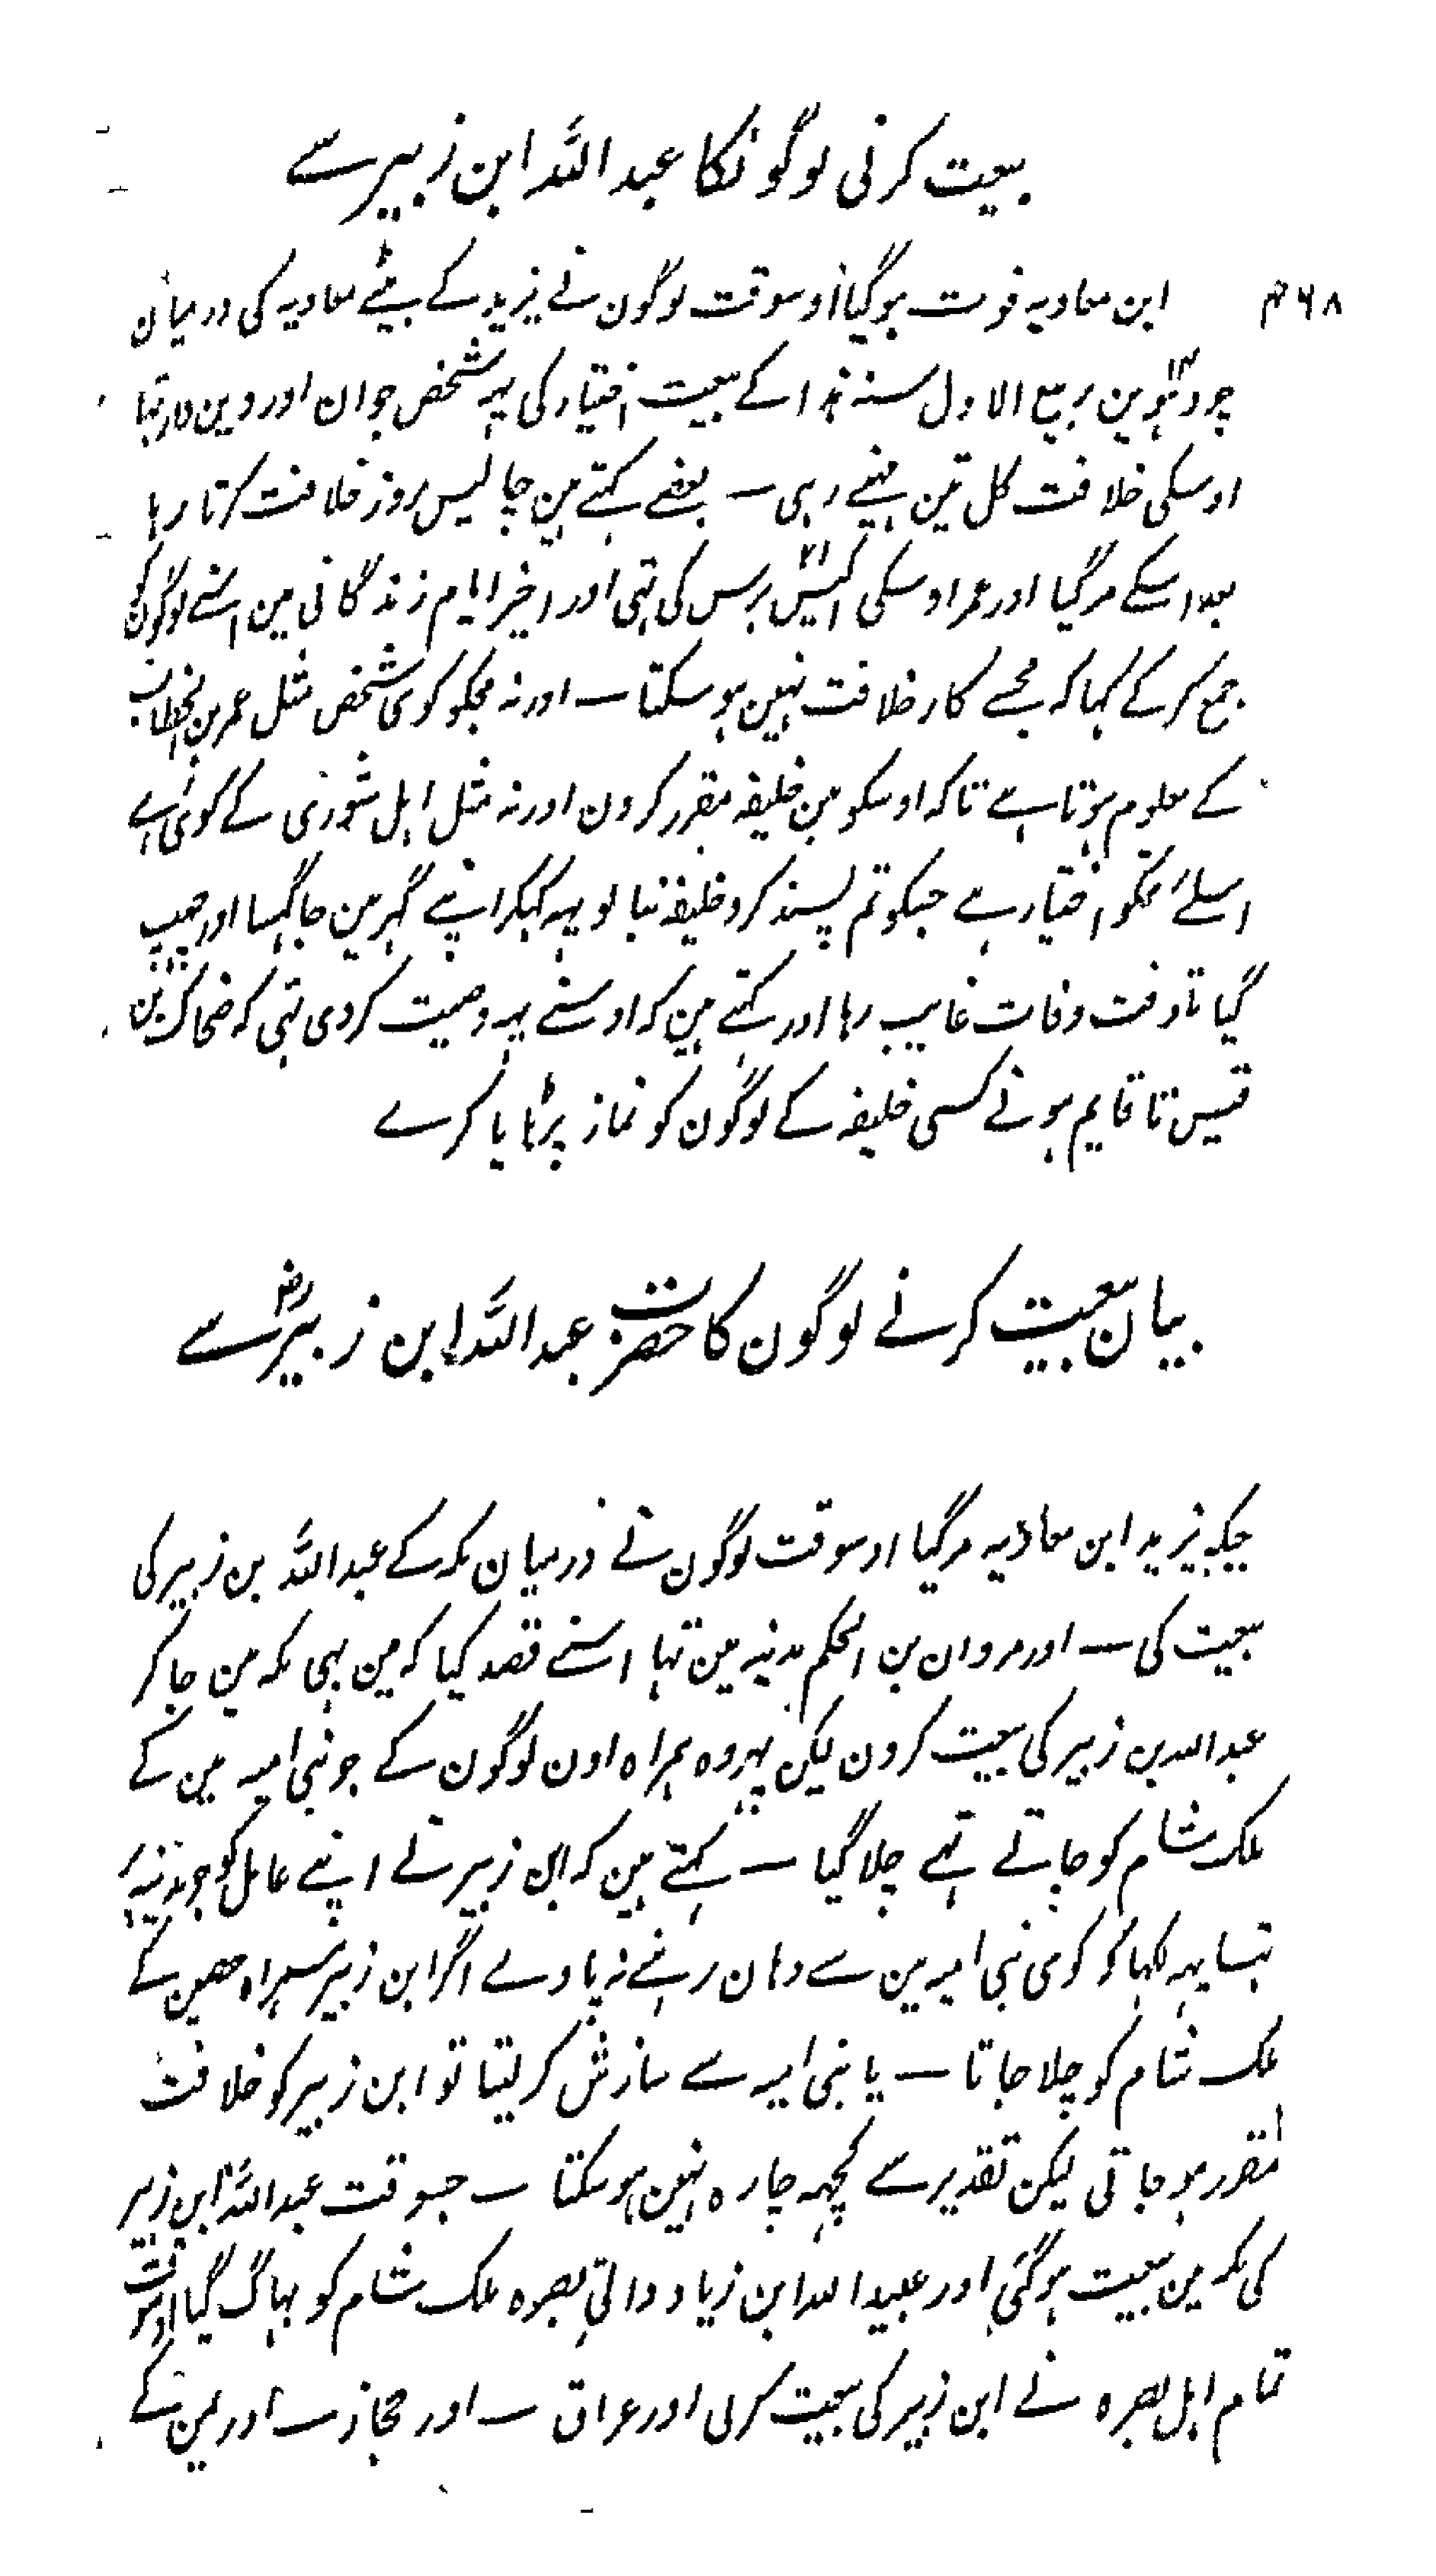 بیعت کرنی لوگونکا عبد اللہ ابن زبیر سے
۴۶۸
ابن معاویہ فوت ہوگیا اوسوقت لوگون نے یزید کے بیٹے معاویہ کی درمیان
چودہوین ۱۴ ربیع الاول سنہ ہذا کے بیعت اختیار کی یہہ شخص جوان اور دین دار تہا
اوسکی خلافت کل تین مہینے رہی — بعضے کہتے ہین چالیس روز خلافت کرتا رہا
بعد اسکے مرگیا اور عمر اوسکی اکیس ۲۱ برس کی تہی اور اخیر ایام زندگانی مین اسنے لوگون کو
جمع کرکے کہا کہ مجھسے کار خلافت نہین ہو سکتا — اور نہ مجکو کوی شخص مثل عمر بن الخطاب
کے معلوم ہوتا ہے تاکہ اوسکو مین خلیفہ مقرر کرون اور نہ مثل اہل شوری کے کوئی ہے
اسلئے تمکو اختیار ہے جسکو تم پسند کرو خلیفہ بنا لو یہہ کہکر اپنے گہر مین جا گہسا اور چہپ
گیا تا وقت وفات غایب رہا اور کہتے ہین کہ اوسنے یہہ وصیت کردی تہی کہ ضحاک بن
قیس تا قایم ہونے کسی خلیفہ کے لوگون کو نماز پڑہایا کرے
بیان بیعت کرنے لوگون کا حضرت عبد اللہ ابن زبیرؓ سے
جبکہ یزید ابن معاویہ مرگیا اوسوقت لوگون نے درمیان مکہ کے عبد اللہ بن زبیر کی
بیعت کی — اور مروان بن الحکم مدینہ مین تہا اسنے قصد کیا کہ مین بہی مکہ مین جاکر
عبد اللہ بن زبیر کی بیعت کرون لیکن پہر وہ ہمراہ اون لوگون کے جو بنی امیہ مین کے
ملک شام کو جاتے تہے چلا گیا — کہتے ہین کہ ابن زبیر نے اپنے عامل کو جو مدینہ پر
تہا یہہ لکہا کہ کوی بنی امیہ مین سے وہان رہنے نہ پاوے اگر ابن زبیر ہمراہ حصین کے
ملک شام کو چلا جاتا — یا بنی امیہ سے سازش کرلیتا تو ابن زبیر کو خلافت
مقرر ہو جاتی لیکن تقدیر سے کچہہ چارہ نہین ہوسکتا — جسوقت عبد اللہ ابن زبیر
کی مکہ مین بیعت ہوگئی اور عبید اللہ ابن زیاد والی بصرہ ملک شام کو بہاگ گیا اوسوقت
تمام اہل بصرہ نے ابن زبیر کی بیعت کرلی اور عراق — اور حجاز — اور یمن کے